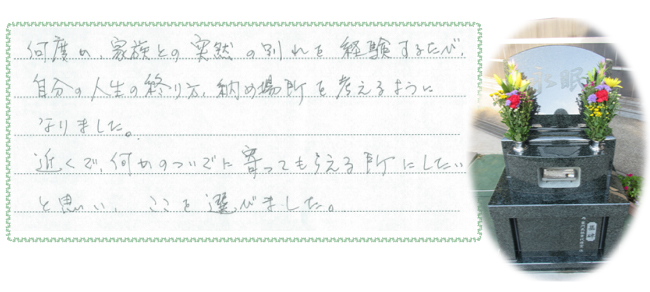 何度か、家族との突然の別れを経験するたび、
自分の人生の終り方、納め場所を考えるように
なりました。
近くで、何かのついでに寄ってもらえる所にしたい
と思い、ここを選びました。
永眠